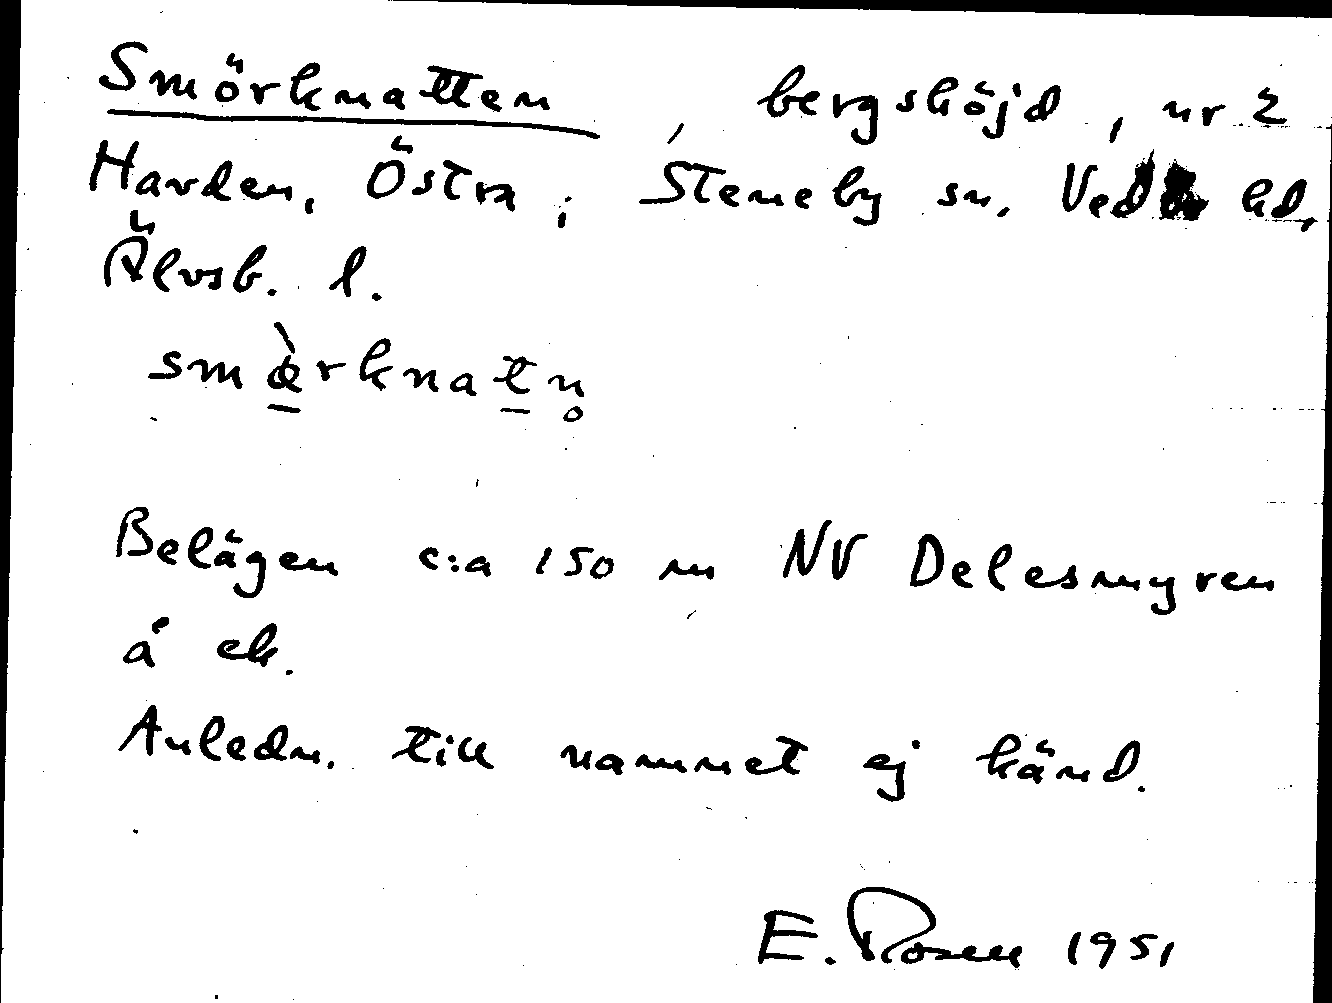 Smörknatten, bergshöjd, nr 2
Harden, Östra, Steneby sn. Vedb hd,
Älvsb. l.
smæ̀rknatn̥
Belägen c:a 150 m NV Delesmyren
å ek.
Anledn. till namnet ej känd.
E. Rosen 1951